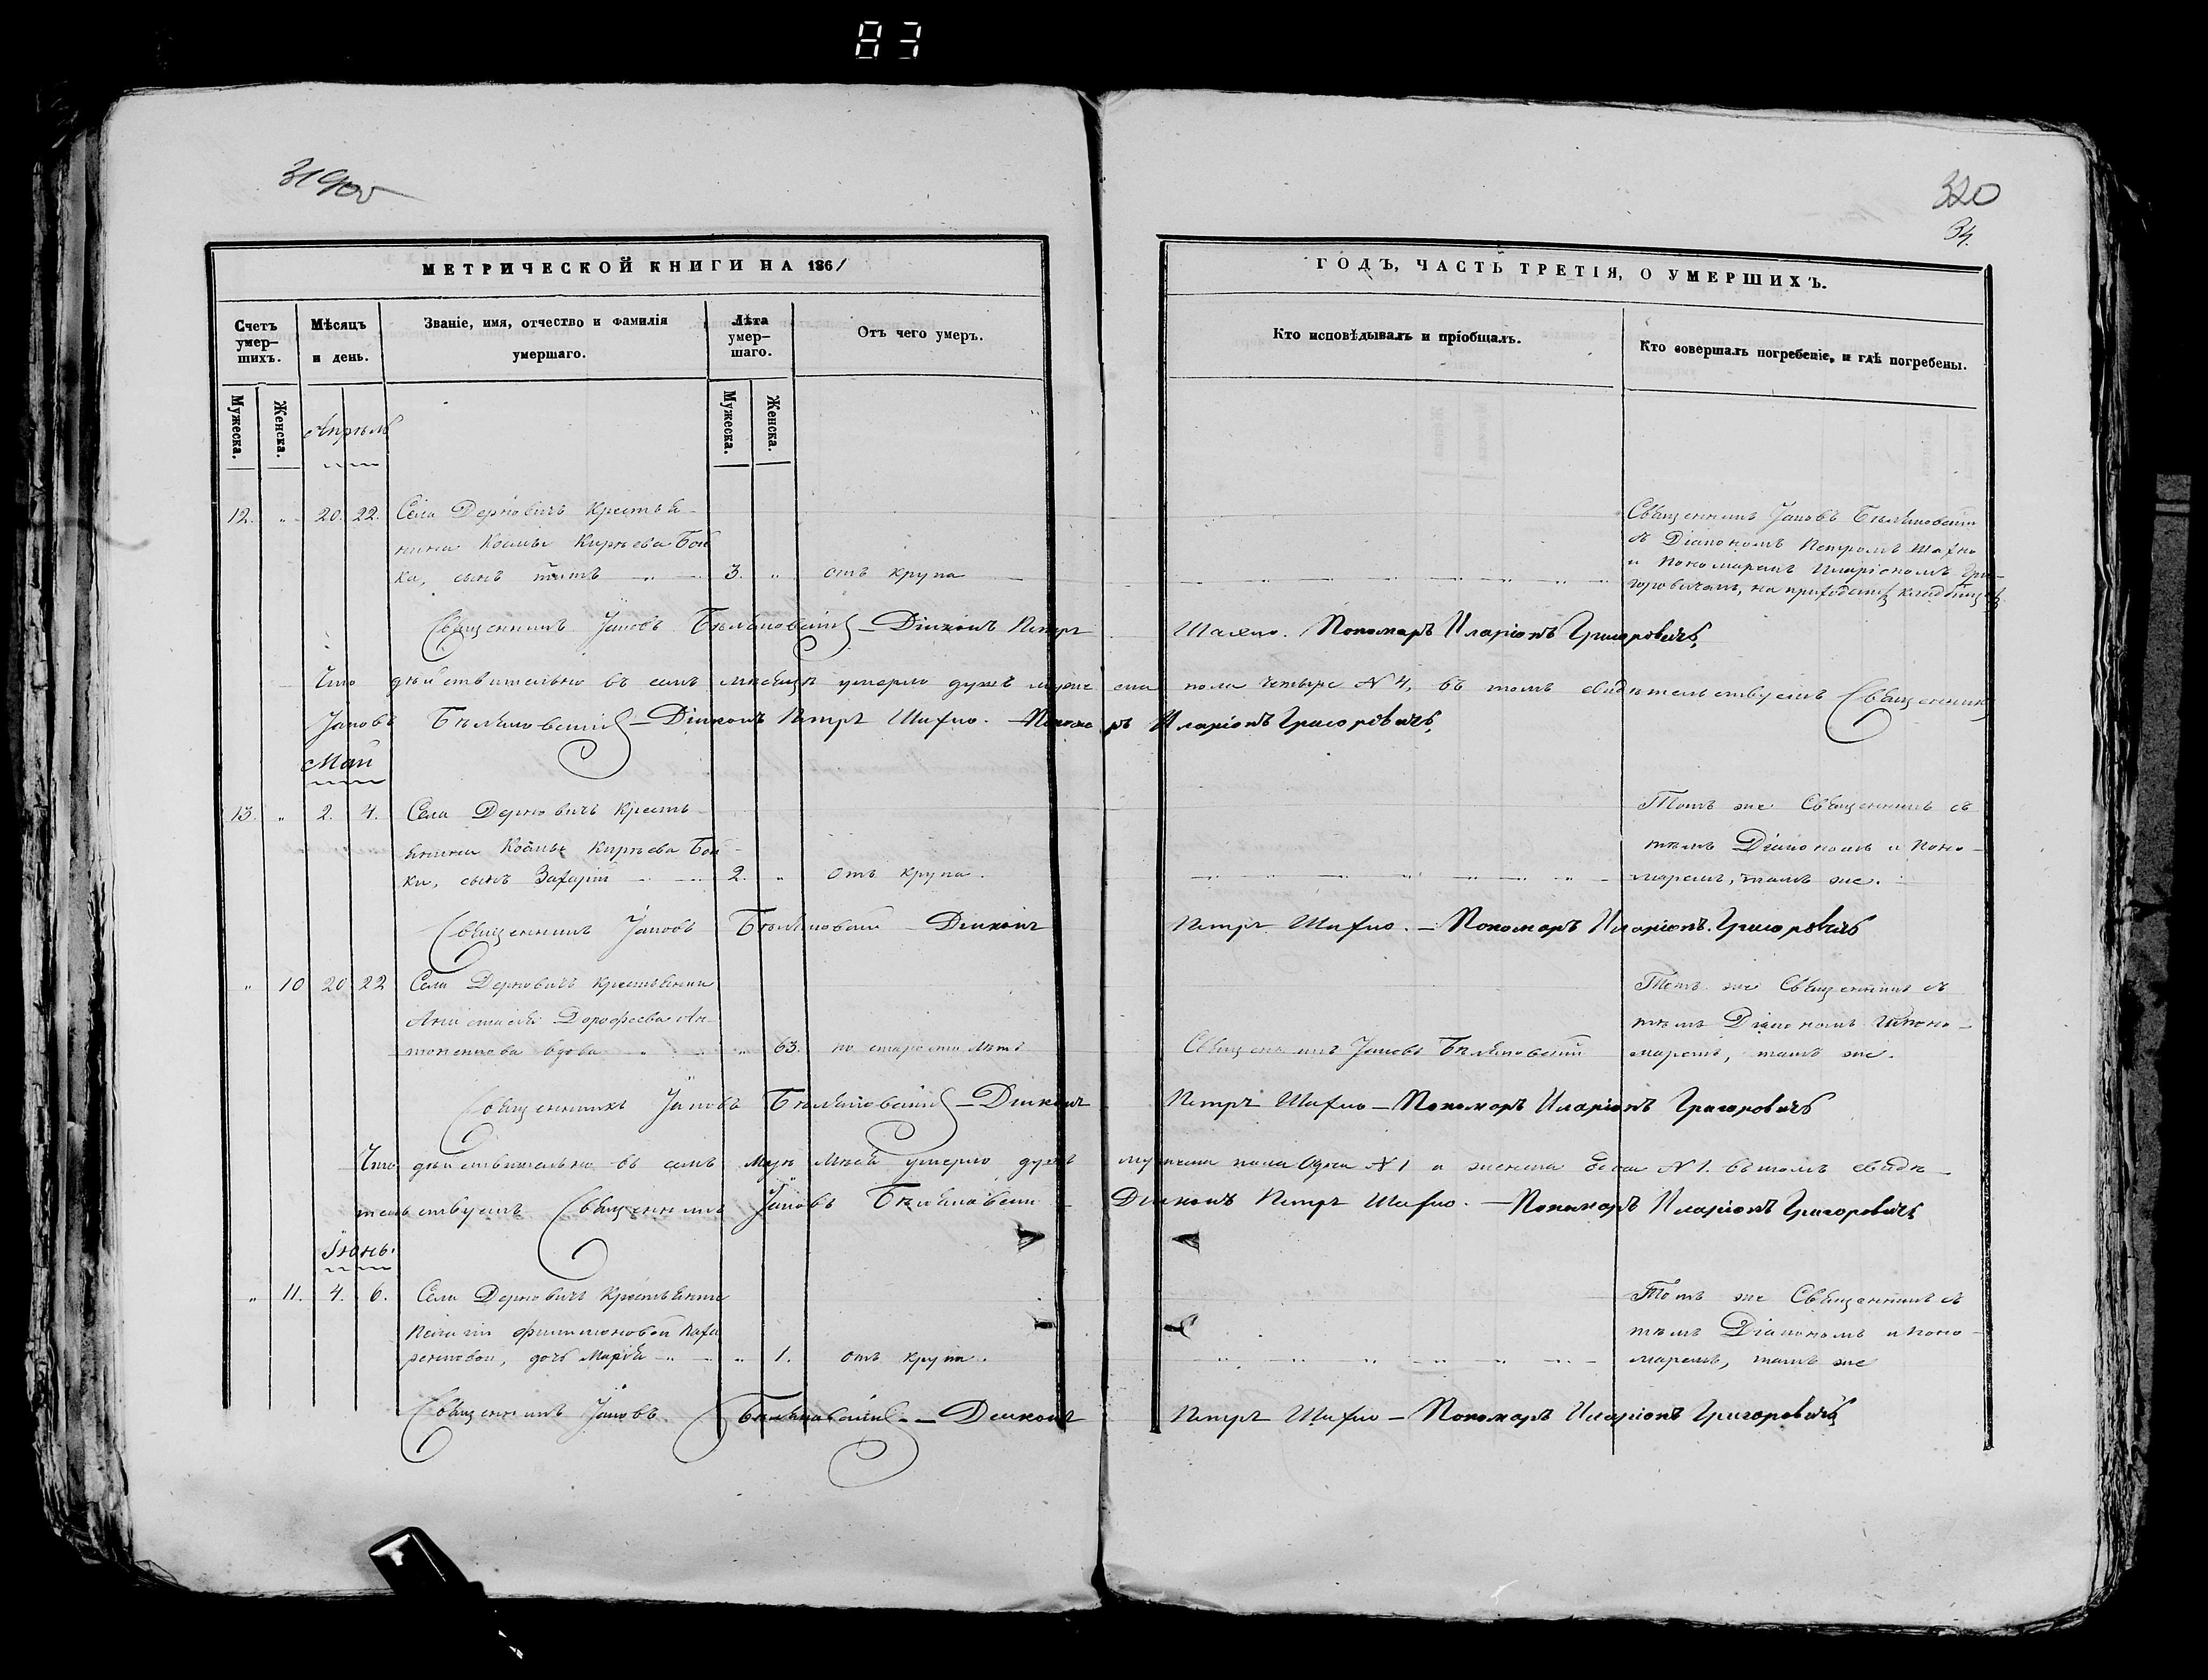 83
319об
320
34.
МЕТРИЧЕСКОЙ КНИГИ НА 1861
ГОДЪ, ЧАСТЬ ТРЕТІЯ, О УМЕРШИХЪ.
Счетъ умер-шихъ.
Мѣсяцъ и день.
Званіе, имя, отчество и фамилія умершаго.
Лѣта умер-шаго.
Отъ чего умеръ.
Кто исповѣдывалъ и пріобщалъ.
Кто совершалъ погребеніе, и гдѣ погребены.
Мужеска.
Женска.
Мужеска.
Женска.
Апрѣль
12. " 20. 22. Села Дерновичъ Крестья-
нина Космы Кирѣева Бой
ка, сынъ 3. " отъ крупа
Священникъ Іаковъ
съ Діакономъ Петромъ Шахно
и Пономаремъ Иларіономъ Гри-
горовичемъ, на приходскомъ кладбищѣ
Священникъ Іаковъ Діаконъ Петръ Шахно. Пономарь Иларіонъ Григоровичъ
Что дѣйствительно въ семъ мѣсяцѣ умерло душъ мужеска пола четыре N 4, въ томъ свидѣтельствуемъ Священникъ
Іаковъ Діаконъ Петръ Шахно. Пономарь Иларіонъ Григоровичъ
Май
13. " 2. 4. Села Дерновичъ Кресть-
янина Космы Кирѣева Бой
ка, сынъ Захарій 2. " отъ крупа.
Тотъ же Священникъ съ
тѣмъ Діакономъ и Поно-
маремъ, тамъ же.
Священникъ Іаковъ Діаконъ Петръ Шахно. Пономарь Иларіонъ Григоровичъ
" 10 20 22 Села Дерновичъ крестьянка
Анастасія Дорофеева Ан-
тоненкова вдова " 63. по старости лѣтъ
Священникъ Іаковъ
Тотъ же Священникъ съ
тѣмъ Діакономъ и Поно-
маремъ, тамъ же.
Священникъ Іаковъ Діаконъ Петръ Шахно Пономарь Иларіонъ Григоровичъ
Что дѣйствительно въ семъ Маѣ мѣсяцѣ умерло душъ мужеска пола одна N 1 и женска одна N 1. въ томъ свидѣ-
тельствуемъ Священникъ Іаковъ Діаконъ Петръ Шахно. Пономарь Иларіонъ Григоровичъ
Іюнь.
" 11. 4. 6. Села Дерновичъ Крестьянки
Филимоновой
дочь Марія " 1. отъ крупа.
Тотъ же Священникъ съ
тѣмъ Діакономъ и Поно-
маремъ, тамъ же
Священникъ Іаковъ Діаконъ Петръ Шахно Пономарь Иларіонъ Григоровичъ